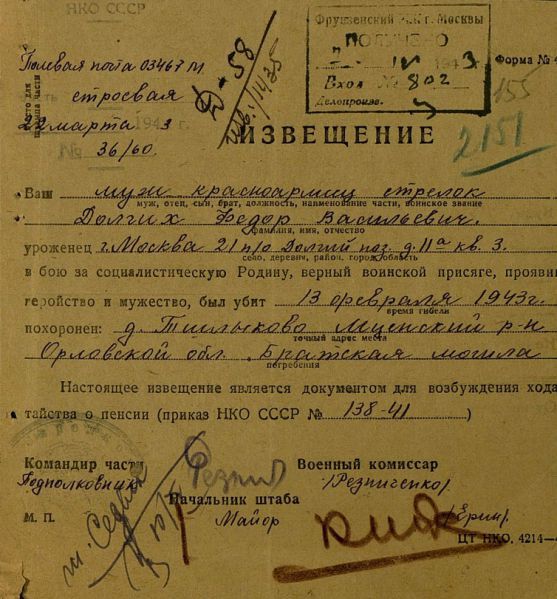 НКО СССР
Фрунзенский РВК г. Москвы
ПОЛУЧЕНО
IV 1943
Вход № 802
Делопроизв.
Форма № 4
Полевая почта 03467 М
строевая
22 марта 1943 г.
№ 36/60
Место для
штампа части
Д-58
155
2151
ИЗВЕЩЕНИЕ
Ваш муж красноармеец стрелок
муж, отец, сын, брат, должность, наименование части, воинское звание
Долгих Федор Васильевич.
фамилия, имя, отчество
уроженец г. Москва 21 п/о Долгий поз. д. 11а кв. 3.
село, деревня, район, город, область
в бою за социалистическую Родину, верный воинской присяге, проявив
геройство и мужество, был убит 13 февраля 1943 г.
время гибели
похоронен: д. Мценский р-н
точный адрес места
Орловской обл. Братская могила
погребения
Настоящее извещение является документом для возбуждения хода-
тайства о пенсии (приказ НКО СССР № 138-41)
Командир части
Военный комиссар
Подполковник
/Резниченко/
Начальник штаба
М. П.
Майор
/Ерин/
ЦТ НКО. 4214-4